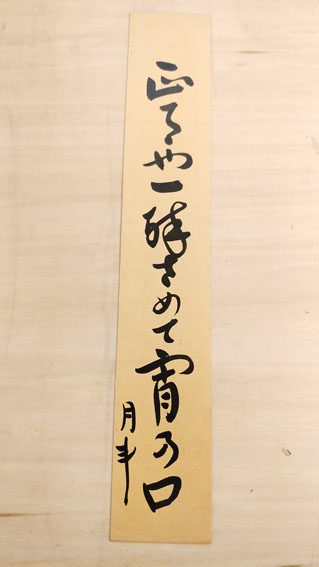 正月や一酔さめて宵の口
月斗